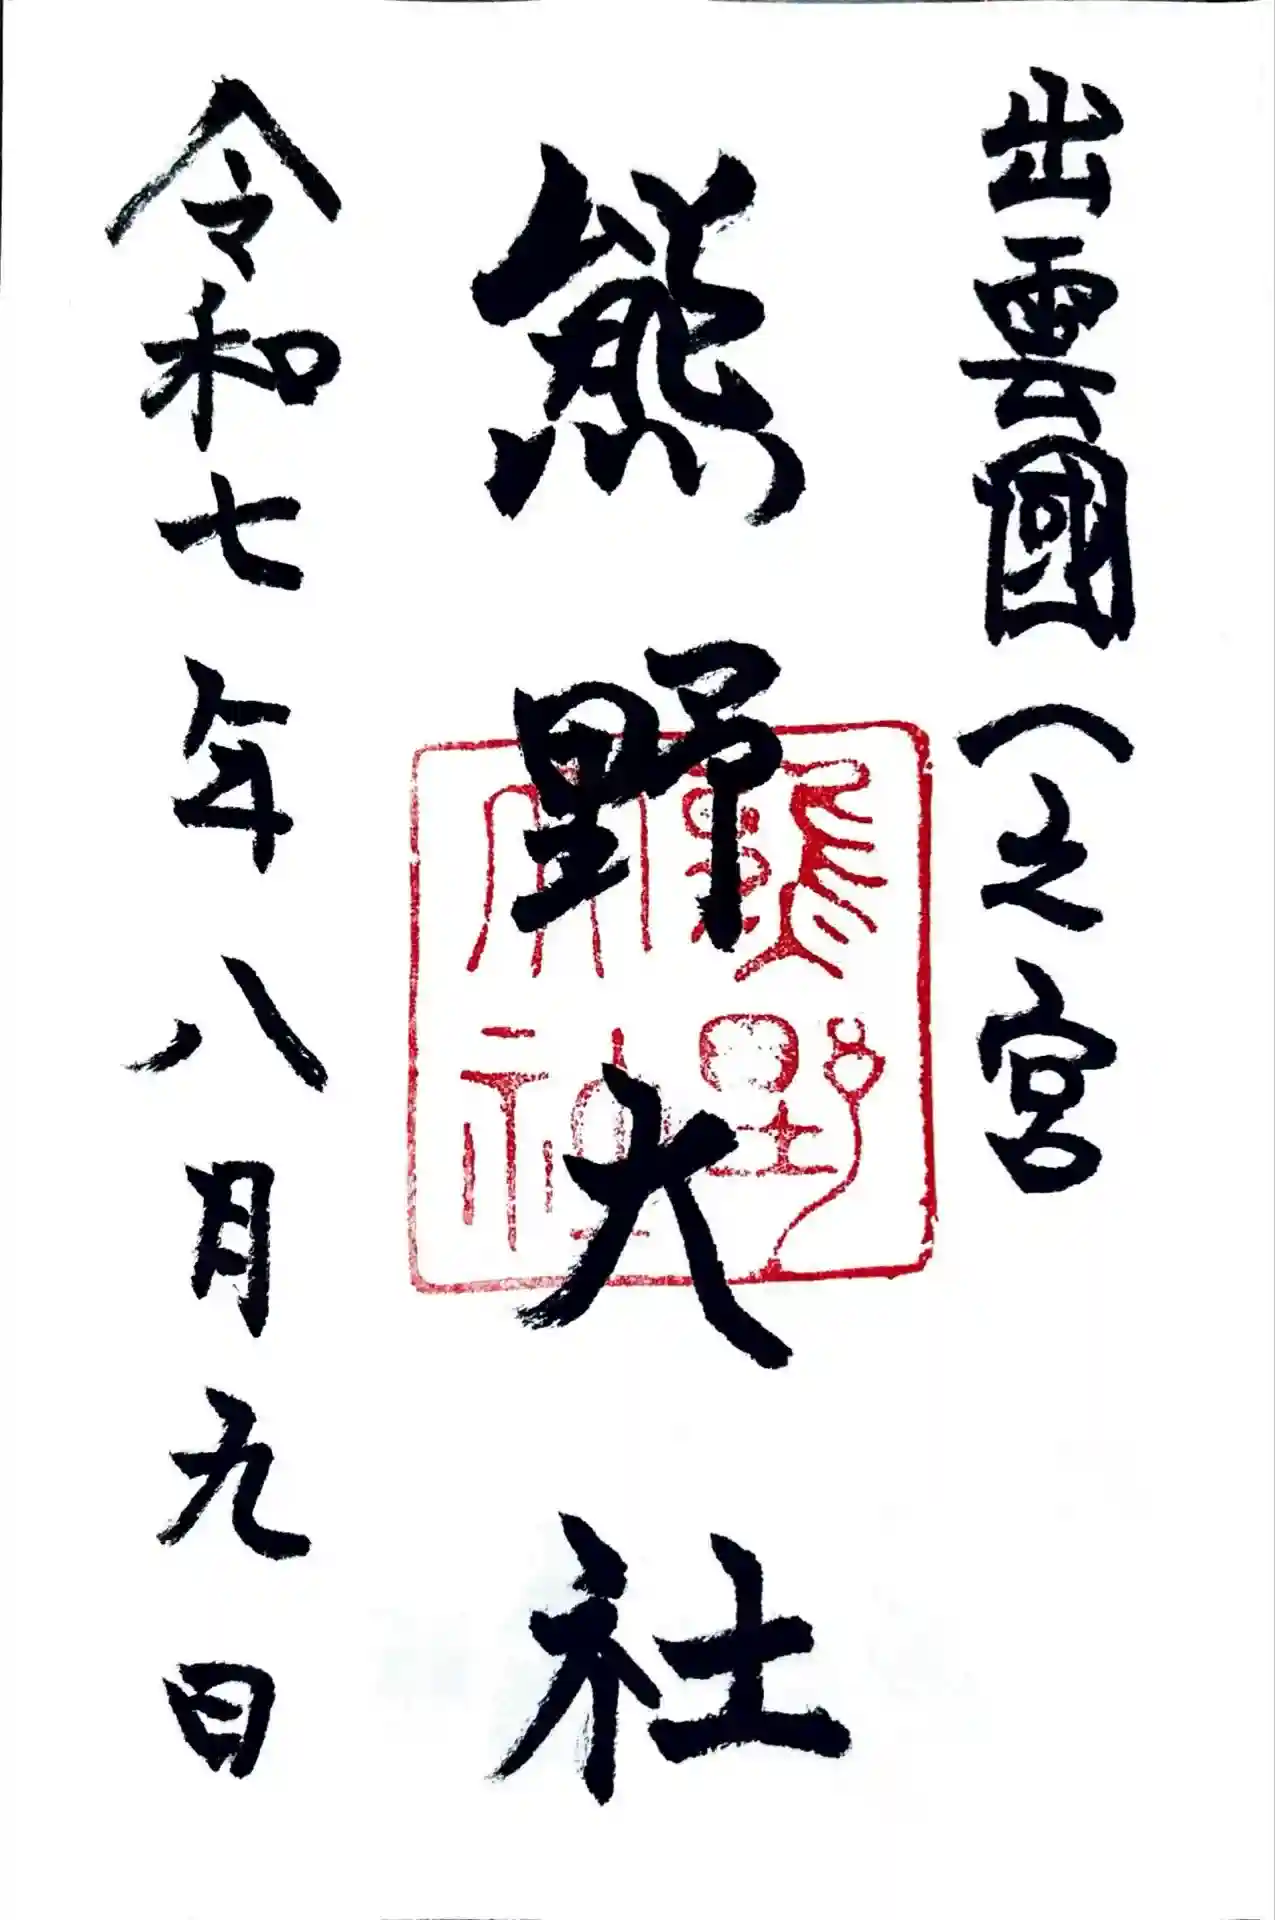 出雲國一之宮
熊野大社
令和七年八月九日
熊野
大社